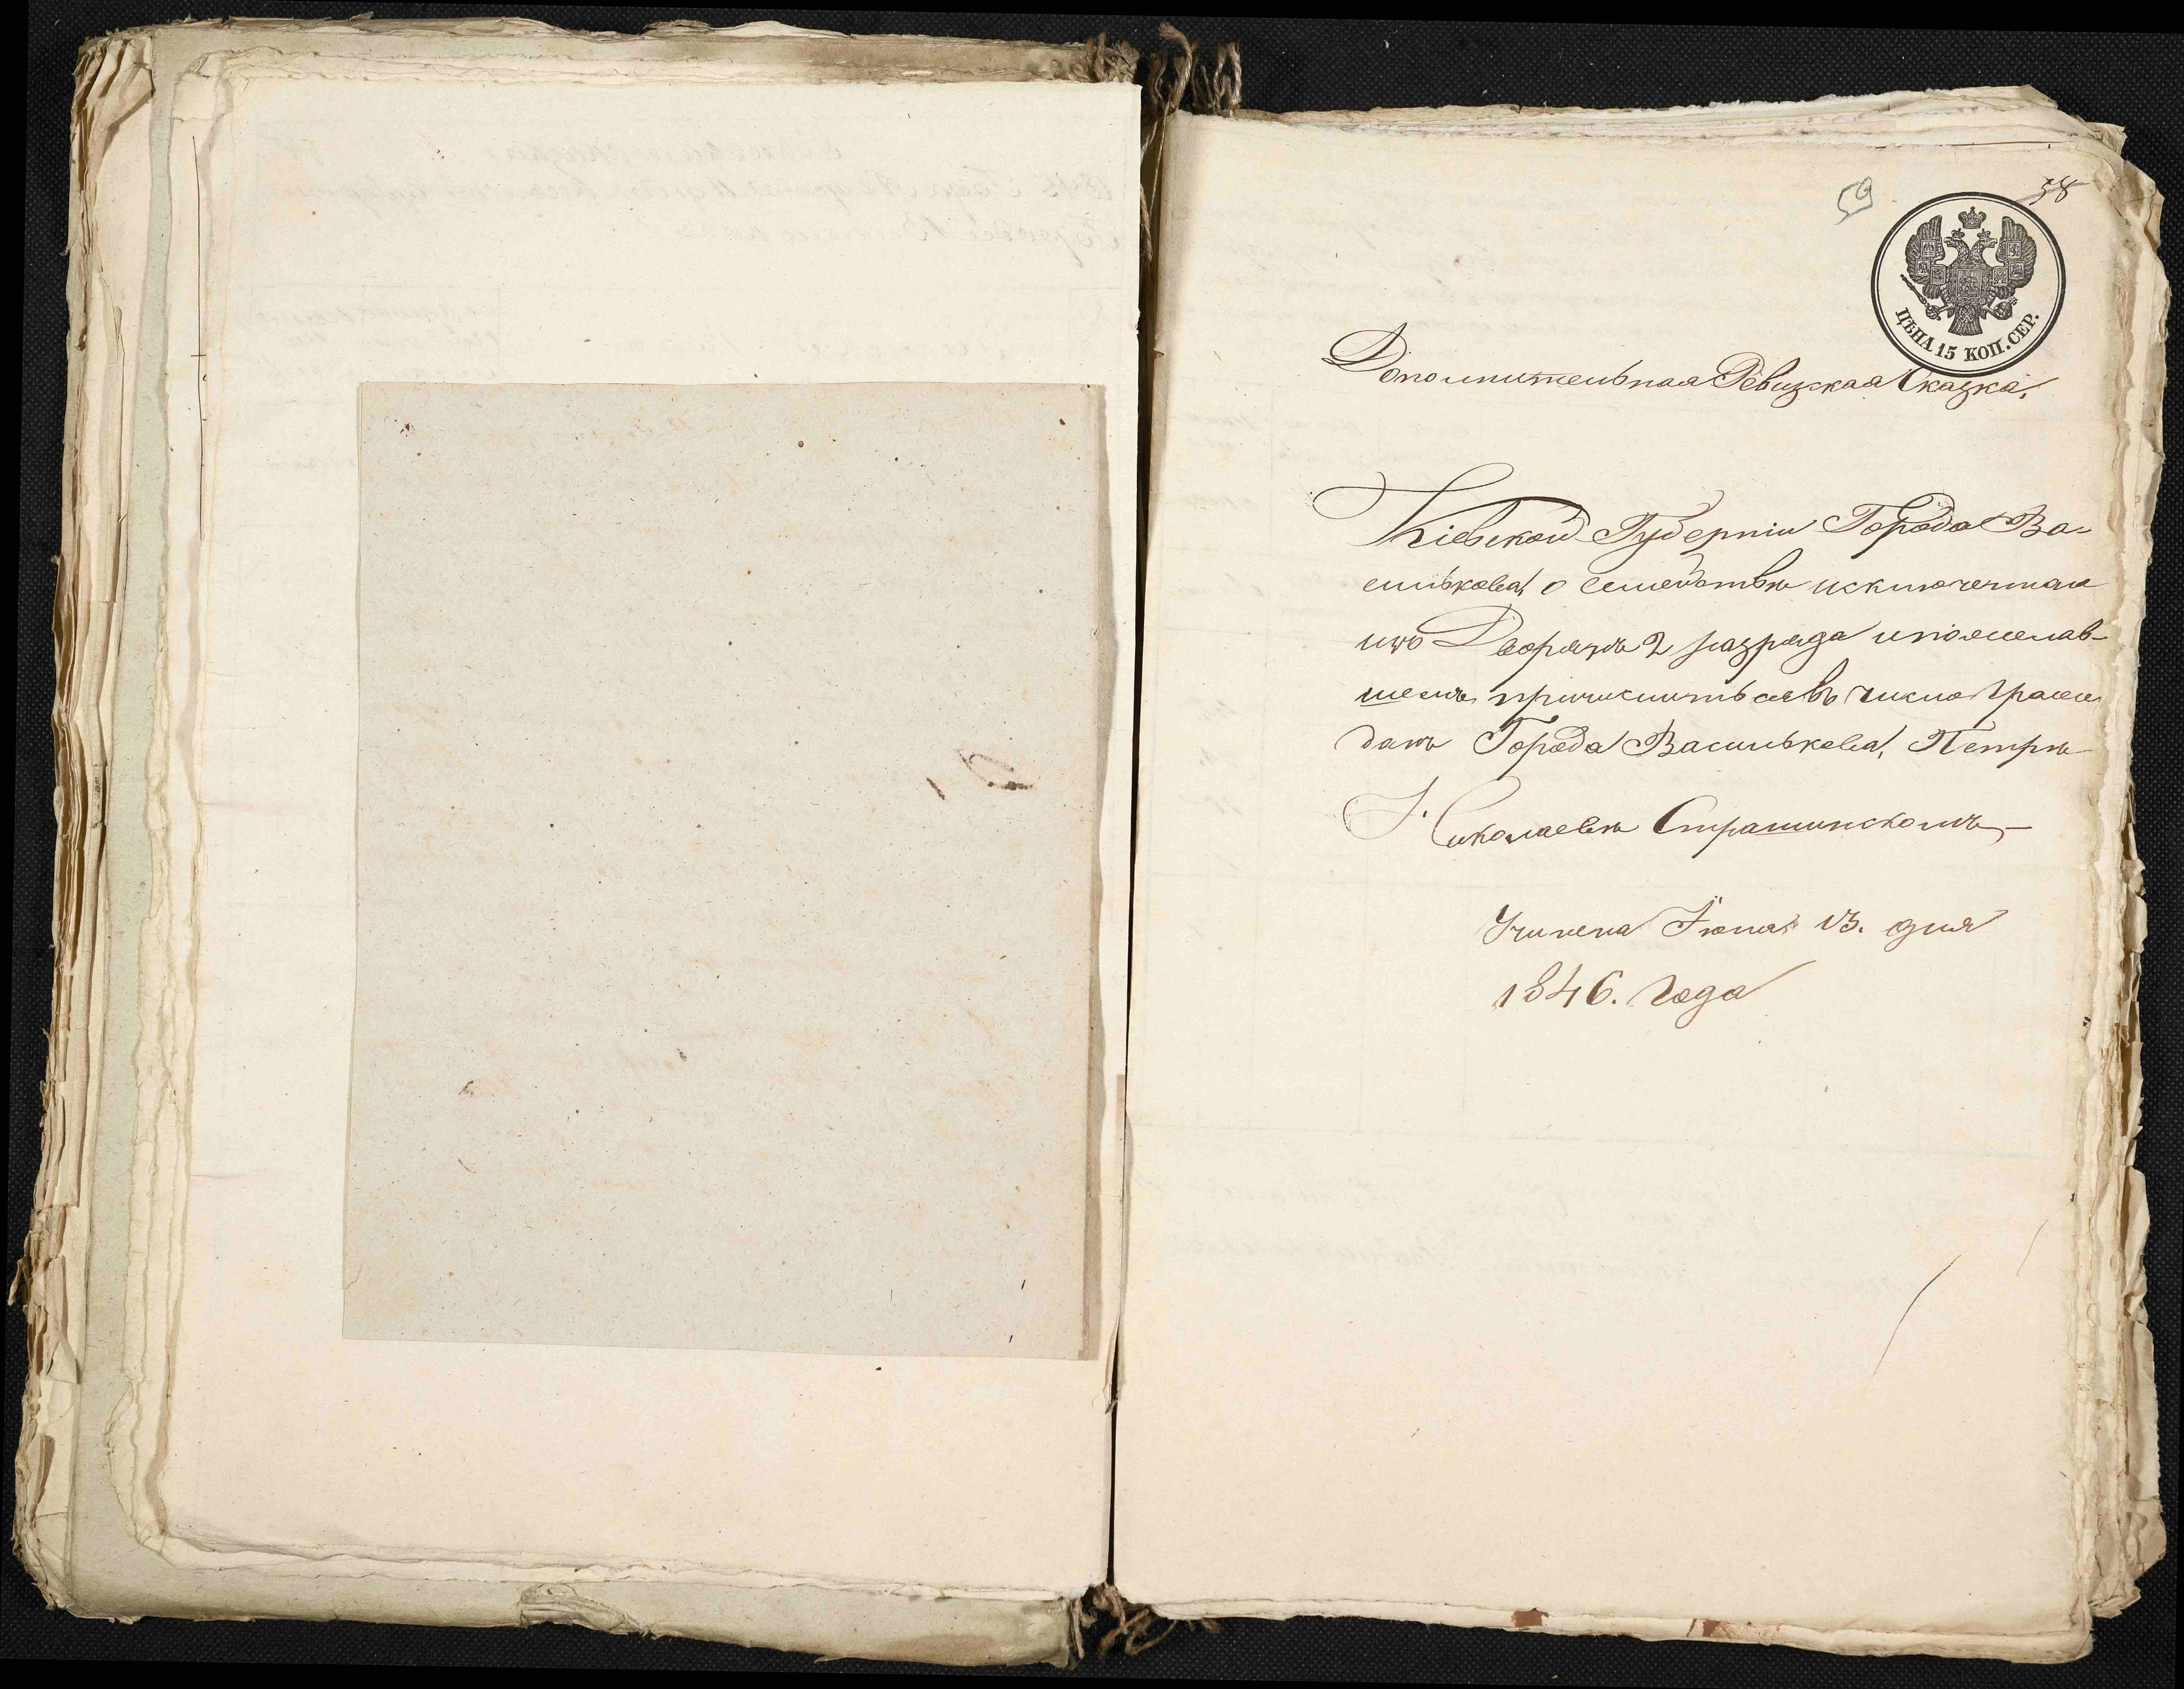 59
58
ЦѢНА 15 КОП. СЕР.
Дополнительная Ревизская Сказка,
Кіевской Губерніи Города Ва-
силькова, о семействѣ исключенном
изъ Дворянъ 2 разряда и пожелав-
шемъ причислиться въ число граж
данъ Города Василькова, Петрѣ
Николаевѣ Страшинскомъ,—
Учинена Іюня 13. дня
1846. Года